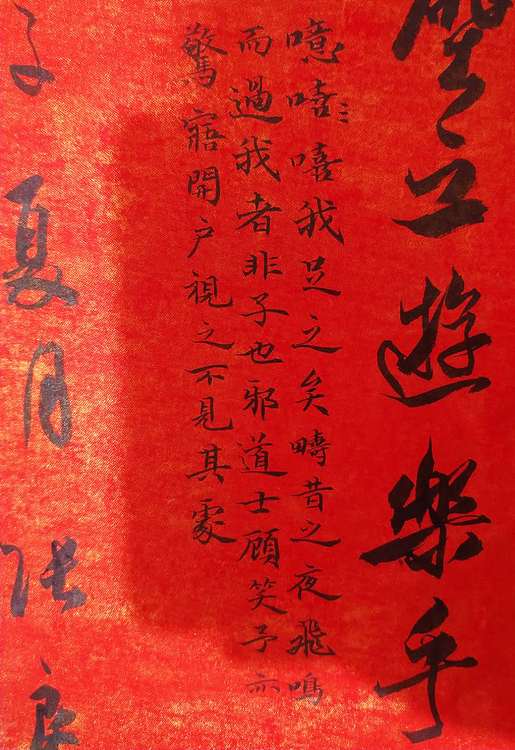 壁之遊樂乎
噫嘻嘻我足之矣疇昔之夜飛鳴
而過我者非子也邪道士顧笑予亦
驚寤開戶視之不見其處
子夏月張良